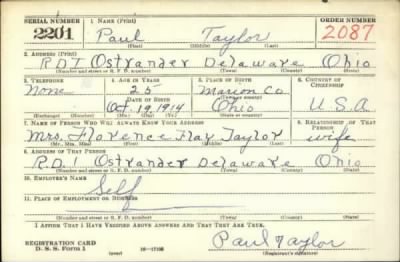 SERIAL NUMBER 1. NAME (Print) ORDER NUMBER
2201 Paul Taylor 2087
(First) (Middle) (Last)
2. ADDRESS (Print)
R D 1 Ostrander Delaware Ohio
(Number and street or R. F. D. number) (Town) (County) (State)
3. TELEPHONE 4. AGE IN YEARS 5. PLACE OF BIRTH 6. COUNTRY OF CITIZENSHIP
None 25 Marion Co.
DATE OF BIRTH (Town or county)
Oct. 19, 1914 Ohio U.S.A
(Exchange) (Number) (Mo.) (Day) (Yr.) (State or country)
7. NAME OF PERSON WHO WILL ALWAYS KNOW YOUR ADDRESS 8. RELATIONSHIP OF THAT PERSON
Mrs. Florence Flay Taylor wife
(Mr., Mrs., Miss) (First) (Middle) (Last)
9. ADDRESS OF THAT PERSON
R.D. 1 Ostrander Delaware Ohio
(Number and street or R. F. D. number) (Town) (County) (State)
10. EMPLOYER'S NAME
Self
11. PLACE OF EMPLOYMENT OR BUSINESS
(Number and street or R. F. D. number) (Town) (County) (State)
I AFFIRM THAT I HAVE VERIFIED ABOVE ANSWERS AND THAT THEY ARE TRUE.
REGISTRATION CARD
D. S. S. Form 1 (over) Paul Taylor
(Registrant's signature)